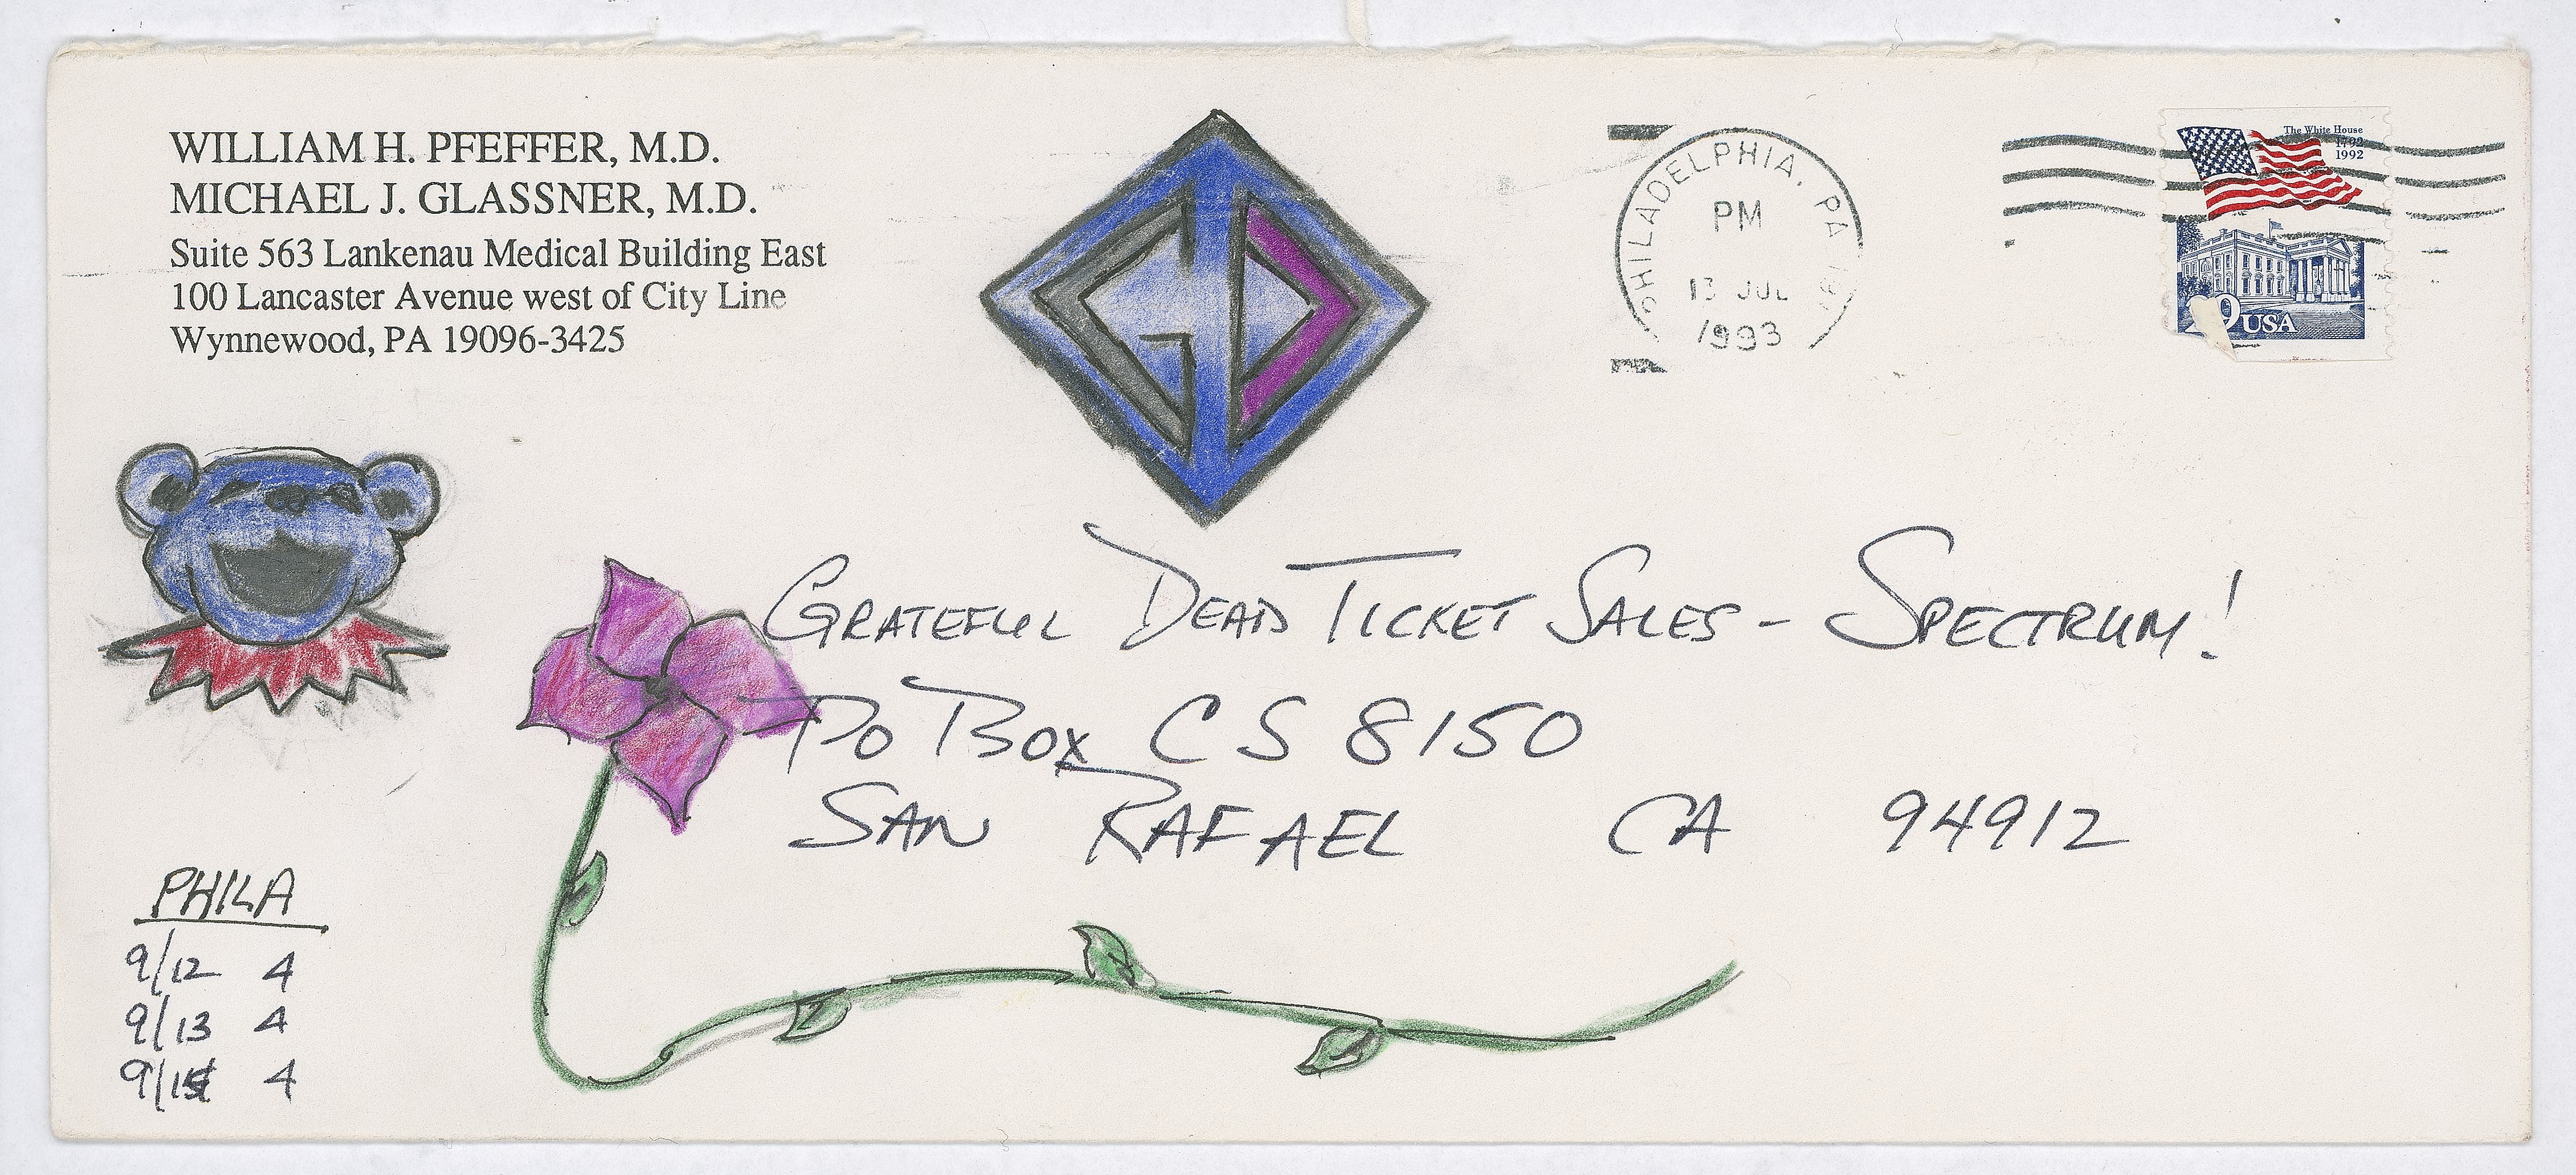 WILLIAM H. PFEFFER, M.D.
MICHAEL J. GLASSNER, M.D.
Suite 563 Lankenau Medical Building East
100 Lancaster Avenue west of City Line
Wynnewood, PA 19096-3425
GD
PHILADELPHIA, PA
PM
13 JUL
1993
The White House
1792
1992
USA
GRATEFUL DEAD TICKET SALES - SPECTRUM!
PO BOX CS 8150
SAN RAFAEL CA 94912
PHILA
9/12 4
9/13 4
4